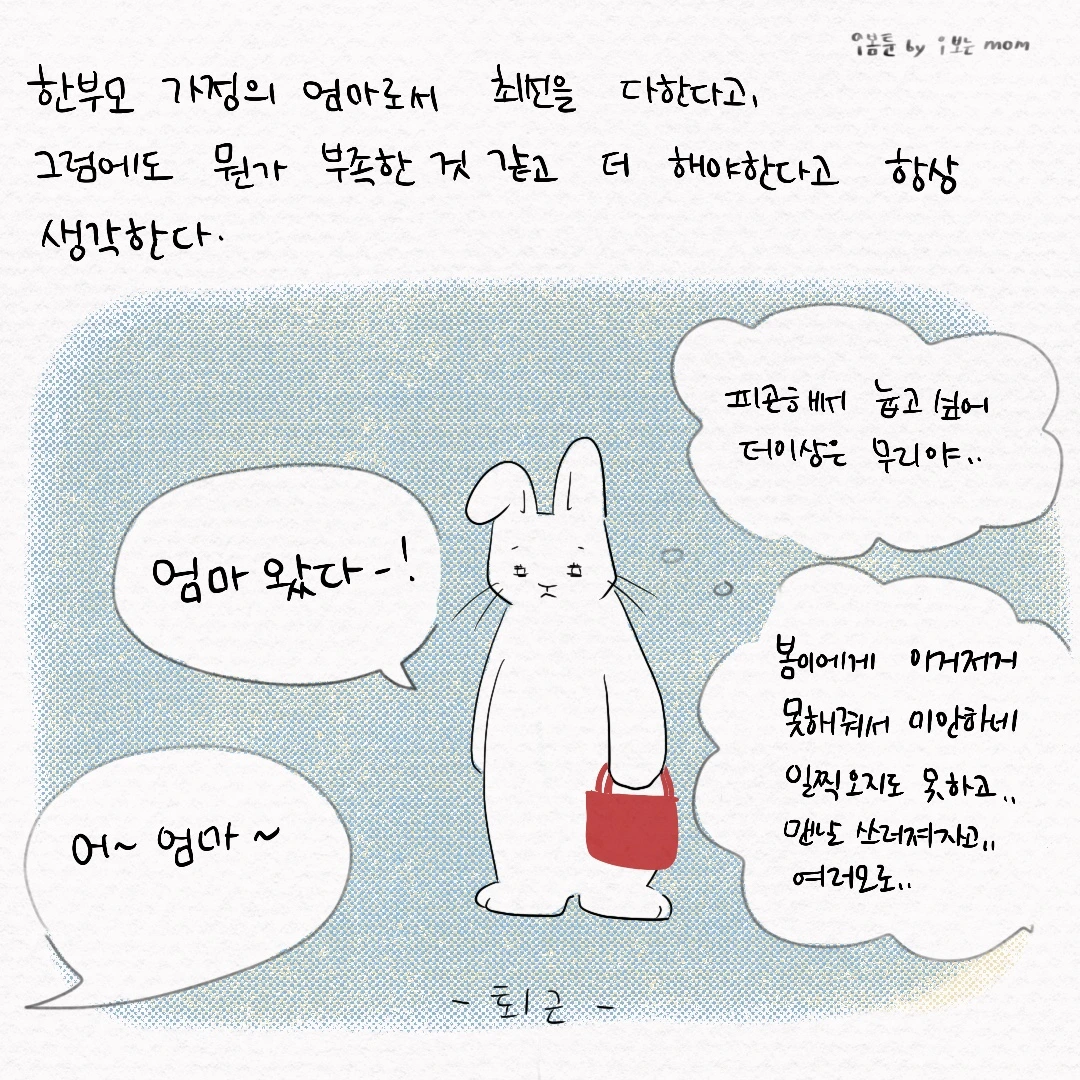 우봄툰 by 우보는 mom
한부모 가정의 엄마로서 최선을 다한다고,
그럼에도 뭔가 부족한 것 같고 더 해야한다고 항상
생각한다.
피곤해서 눕고싶어
더이상은 무리야..
엄마 왔다-!
봄이에게 이거저거
못해줘서 미안하네
일찍오지도 못하고..
맨날 쓰러져자고..
여러모로..
어~ 엄마~
- 퇴근 -